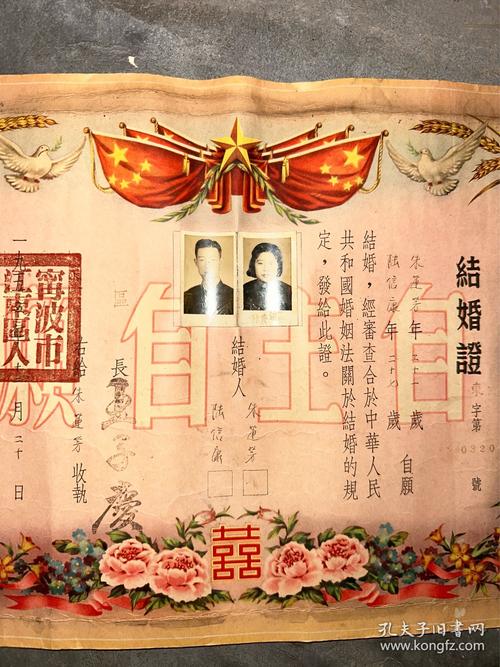 結婚證
字第0320號
朱蓮芳年二十一歲
陸信康年二十七歲
自願
結婚，經審查合於中華人民
共和國婚姻法關於結婚的規
定，發給此證。
自主自願
結婚人
朱蓮芳
陸信康
區長
右給朱蓮芳收執
一九五 月二十日
寧波市
區人
囍
孔夫子旧书网
www.kongfz.com